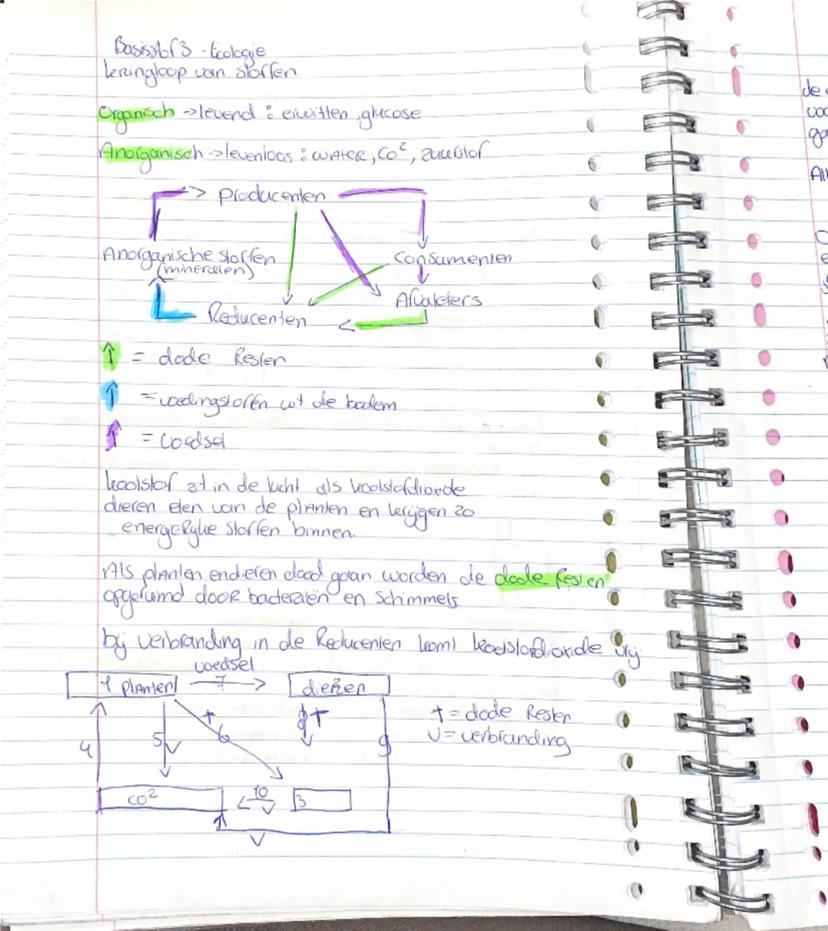 Basisstof 3 - Ecologie
kringloop van stoffen
Organisch -> levend : eiwitten, glucose
Anorganisch -> levenloos : WATER, CO², zuurstof
producenten
Anorganische stoffen
(mineralen)
Consumenten
Afvaleters
Reducenten
↑ = dode Resten
↑ = voedingstoffen uit de bodem
↑ = voedsel
koolstof zit in de lucht als koolstofdioxide
dieren eten van de planten en krijgen zo
energeRijke stoffen binnen.
Als planten en dieren dood gaan worden de dode Resten
opgeruimd door bacteriën en Schimmels
bij verbranding in de Reducenten komt koolstofdioxide vrij
voedsel
1 planten 7 dieren
† = dode Resten
V = verbranding
4 5 V † 6 8 † 9
CO² 10 V 3
V
de
voe
ga
All